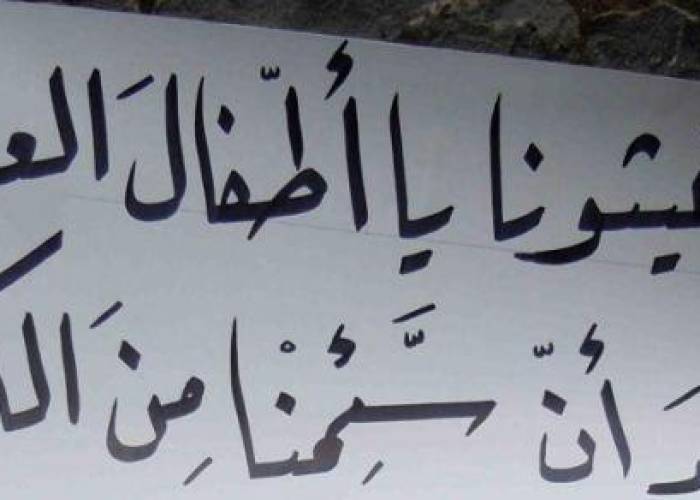 يثونا يا أطّفالَ الع
دَ أنّ سَّئِمْنا مِنَ الك